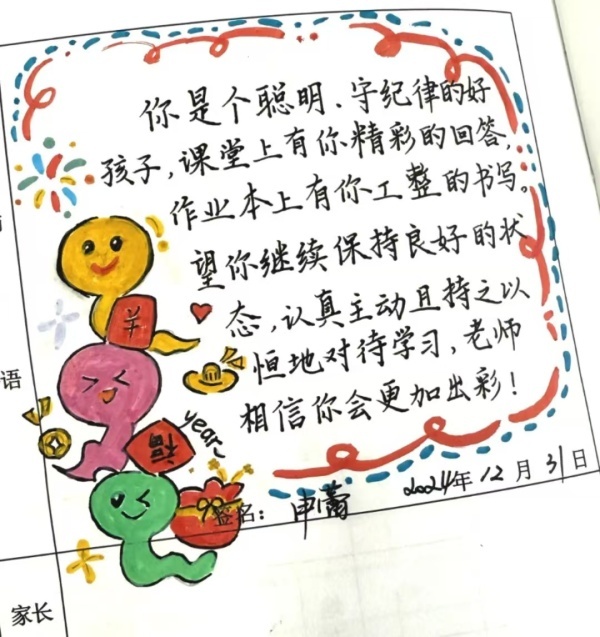 你是个聪明、守纪律的好
孩子,课堂上有你精彩的回答,
作业本上有你工整的书写。
望你继续保持良好的状
态,认真主动且持之以
恒地对待学习,老师
相信你会更加出彩!
羊
福
year~
语
签名: 申蕾 2024年12月31日
家长